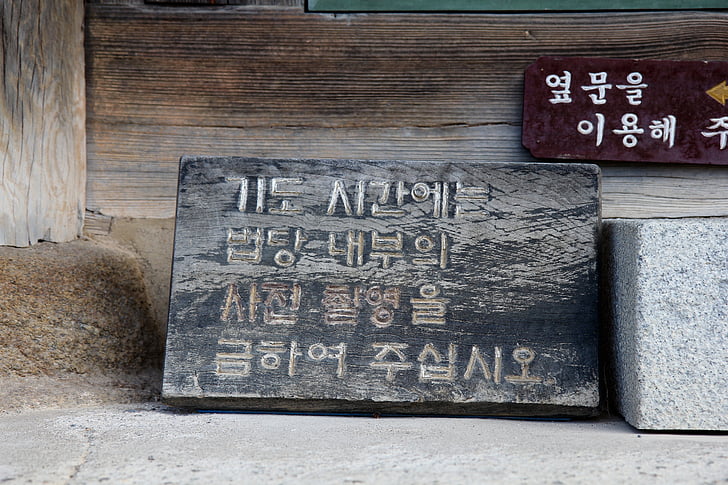 옆문을
이용해 주
기도 시간에는
법당 내부의
사진 촬영을
금하여 주십시오.